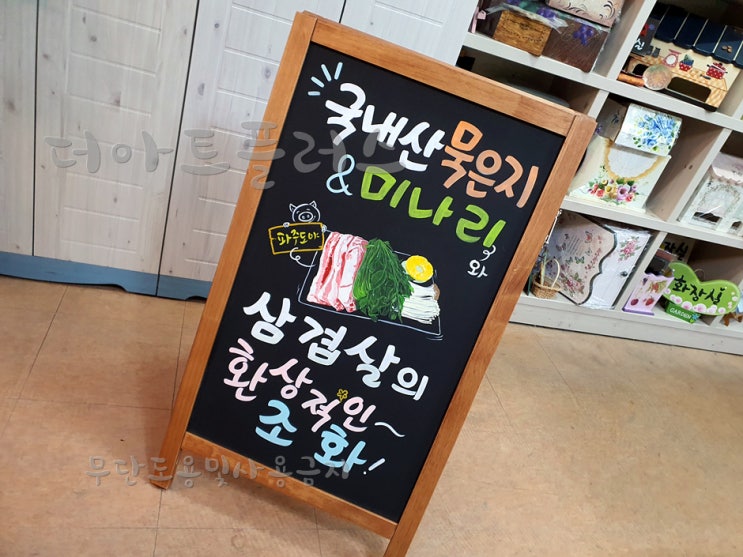 국내산 묵은지
& 미나리
와
파주도야
삼겹살의
환상적인~
조화!
더아트플러스
무단도용및사용금지
화장실
GARDEN